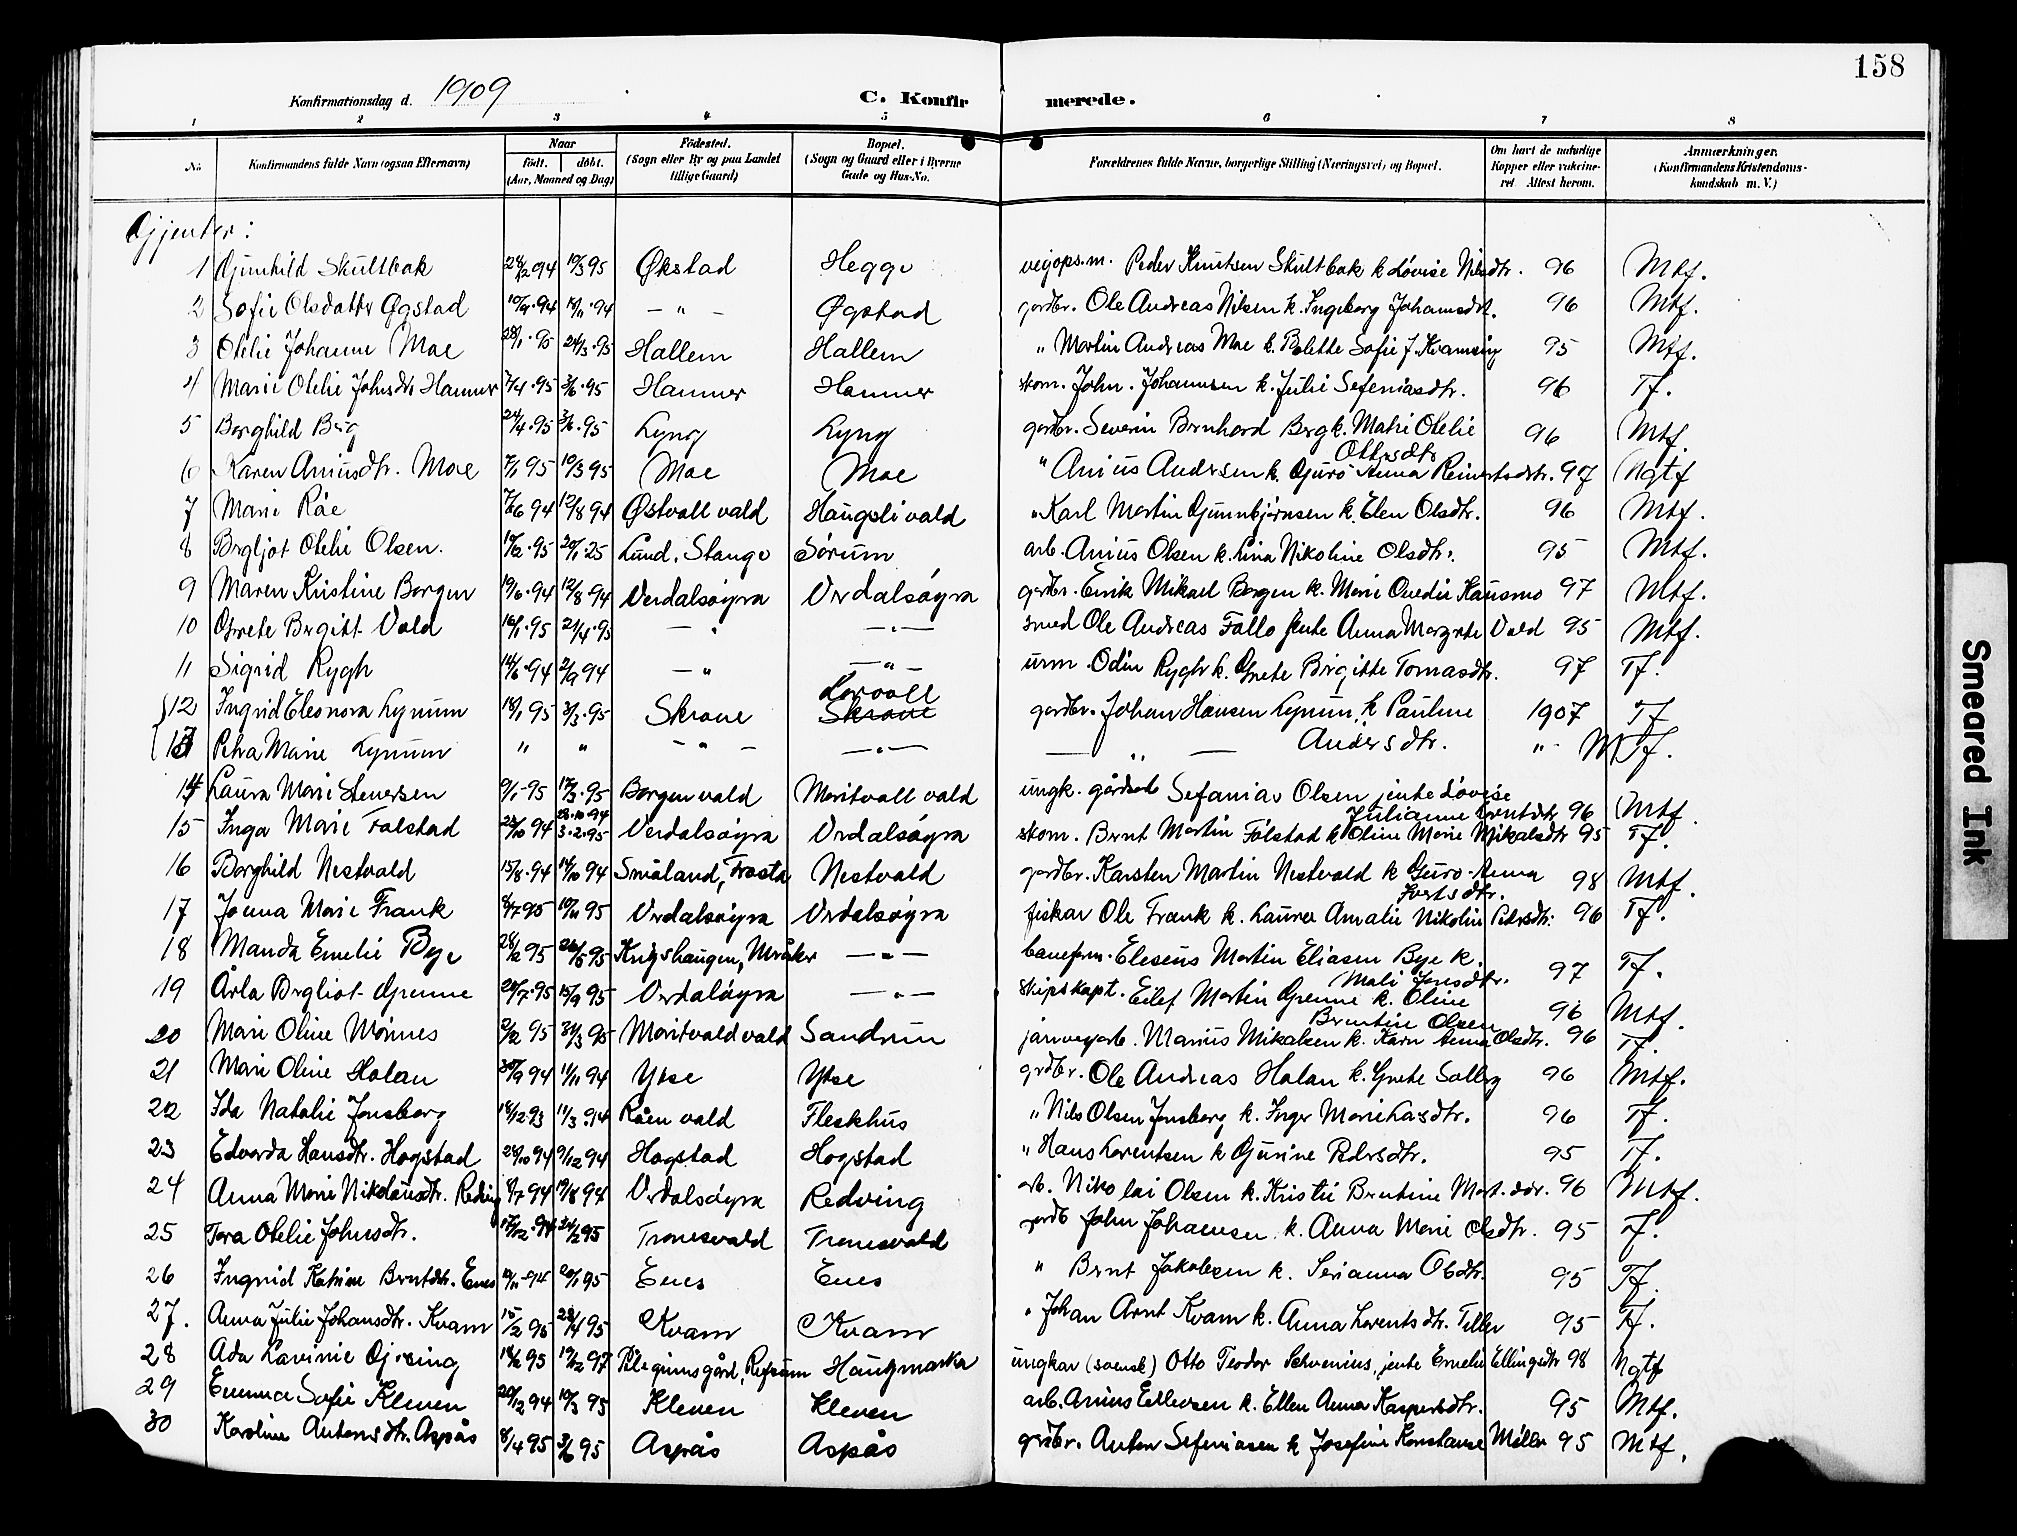 158
Konfirmationsdag d. 1909
C. Konfir merede.
1 2 3 4 5 6 7 8
No.
Konfirmandens fulde Navn (ogsaa Efternavn)
Naar
født. døbt.
(Aar, Maaned og Dag)
Fødested.
(Sogn eller By og paa Landet
tillige Gaard)
Bopæl.
(Sogn og Gaard eller i Byerne
Gade og Hus-No.
Forældrenes fulde Navne, borgerlige Stilling (Næringsvei) og Bopæl.
Om havt de naturlige
Kopper eller vakcine-
ret Attest herom.
Anmærkninger.
(Konfirmandens Kristendoms-
kundskab m. V.)
Gjenter:
1 Gunhild Skultbak 24/2 94 10/3 95 Økstad Hegge vejops.m. Peder Knutsen Skultbak k Lovise Nilsdtr. 96 Mtf.
2 Sofie Olsdatter Øgstad 10/9 94 18/11 94 — " — Øgstad gardbr. Ole Andreas Nilsen k. Ingeborg Johannsdt. 96 Mtf.
3 Otelie Johanne Moe 28/1 95 24/3 95 Hallem Hallem " Martin Andreas Moe k. Bolette Sofie J. Kvamsing 95 Mtf.
4 Marie Otelie Johnsdtr Hammer 7/4 95 3/6 95 Hammer Hammer skom. John Johannesen k. Julie Sefeniasdtr. 96 Tf.
5 Borghild Berg 24/4 95 3/6 95 Lyng Lyng gardbr. Severin Bernhard Berg k. Matie Otelie Ottersdtr 96 Mtf.
6 Karen Aniusdtr. Moe 7/1 95 10/3 95 Moe Moe " Anius Andersen k. Guro Anna Reinertsdtr. 97 Ngtf
7 Marie Råe 7/6 94 12/8 94 Østvoll vald Haugsli vald " Karl Martin Gunnbjørnsen k. Elen Olsdtr. 96 Mtf.
8 Bergljot Otelie Olsen. 10/2 95 20/1 25 Lund, Stange Sørum arb. Anius Olsen k. Lina Nikoline Olsdtr. 95 Mtf.
9 Maren Kristine Borgen 19/6 94 12/8 94 Verdalsøyra Verdalsøyra gardbr. Eirik Mikael Borgen k. Marie Ovedie Hausmo 97 Mtf.
10 Grete Bergitt Vold 16/1 95 21/4 95 — " — — " — smed Ole Andreas Fallo jente Anna Margrete Vold 95 Mtf.
11 Sigrid Rygh 14/6 94 2/9 94 — " — " — urm. Odin Rygh k. Grete Birgitte Tomasdtr. 97 Tf.
12 Ingrid Eleonora Lynum 18/1 95 3/3 95 Skrove Skrove gardbr. Johan Hansen Lynum k Pauline Andersdtr. 1907 Tf
13 Petra Marie Lynum " " — " — — " — — " — " Mtf.
14 Laura Marie Stenersen 9/1 95 17/3 95 Borgen vald Moritvoll vald ungk. Sefanias Olsen jente Lovise Julianne Berntsdtr 96 Mtf.
15 Inga Marie Falstad 23/10 94 28.10.94 3.2.95 Verdalsøyra Verdalsøyra skom. Bernt Martin Falstad k Oline Marie Mikalsdtr 95 Tf.
16 Borghild Nestvald 15/8 94 14/10 94 Småland, Frosta Nestvald gardbr. Karsten Martin Nestvald k Guro Anna Ivertsdtr. 98 Mtf.
17 Jenna Marie Frank 8/7 95 10/11 95 Verdalsøyra Verdalsøyra fiskar Ole Frank k. Laura Amalie Nikoline Pedersdtr. 96 Tf.
18 Manda Emelie Bye 28/2 95 26/5 95 Krigshaugen, Meråker — " — baneform. Eleseus Martin Eliasen Bye k. Mali Jonsdtr. 97 Tf.
19 Årla Bergliot Grenne 20/7 95 15/9 95 Verdaløyra — " — skipskapt. Eilef Martin Grenne k. Oline Berntine Olsen 96 Mtf.
20 Marie Oline Wønnes 2/2 95 31/3 95 Moritvald vald Sandrun jarnvegarb. Marius Mikalsen k. Karn Anna Olsdtr. 96 Tf.
21 Marie Oline Holan 30/9 94 11/11 94 Ytse Ytse gardbr. Ole Andreas Holan k. Grete Solberg 96 Mtf.
22 Ida Natalie Jonsborg 18/12 93 11/3 94 Råen vald Fleskhus " Nils Olsen Jonsborg k. Inger Marie Lasdtr. 96 Tf.
23 Edvarda Hansdtr. Hogstad 24/10 94 9/12 94 Hogstad Hogstad " Hans Lorentsen k Gurine Pedersdtr. 95 Tf.
24 Anna Marie Nikolausdtr. Reding 8/7 94 19/8 94 Verdalsøyra Redving arb. Nikolai Olsen k. Kristie Berntine Mort. ddr. 96 Mtf.
25 Tora Otelie Johnsdtr. 17/12 94 24/2 95 Tronesvald Tronesvald gardb John Johansen k. Anna Marie Olsdtr. 95 Tf.
26 Ingrid Katrine Berntdtr. Enes 19/11 94 20/1 95 Enes Enes " Bernt Jakobsen k. Serianna Olsdtr. 95 Tf.
27. Anna Julie Johansdtr. Kvam 15/2 95 28/4 95 Kvam Kvam " Johan Arnt Kvam k. Anna Lorentsdtr. Teller 95 Tf.
28 Ada Lavinie Gjersing 18/2 95 19/12 97 Pilegrimsgård, Refsum Haugmarka ungkar (svensk) Otto Teodor Schvenius, jente Emelie Ellingsdtr 98 Ngtf
29 Emma Sofie Kleven 20/12 94 10/3 95 Kleven Kleven arb. Anius Ellevsen k. Ellen Anna Kaspersdtr. 95 Mtf.
30 Karoline Antonsdtr. Aspås 8/4 95 3/6 95 Aspås Aspås gardbr. Anton Sefeniasen k Josefine Konstanse Møller 95 Mtf.
Smeared Ink